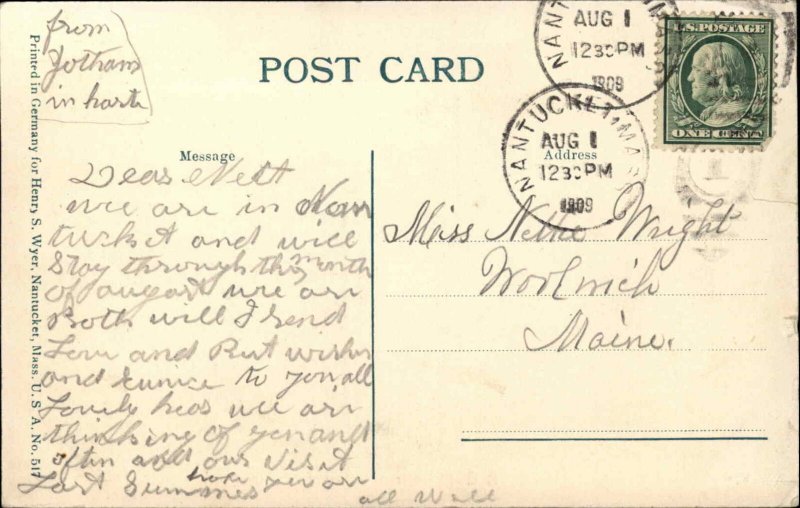 from
Jotham
in haste
Printed in Germany for Henry S. Wyer, Nantucket, Mass. U. S. A. No. 517
POST CARD
NANTUCKET, MASS
AUG 1
1230 PM
1909
U.S. POSTAGE
ONE CENT
NANTUCKET, MASS
AUG 1
1230 PM
1909
Message
Address
Dear Nett
we are in Nan
tucket and will
Stay through this month
of august we are
Both well I send
Love and Best wishes
and to you all
we are
thinking of you and
often and our visit
Last Summer hope you are
all Well
Miss Nettie Wright
Woolwich
Maine.